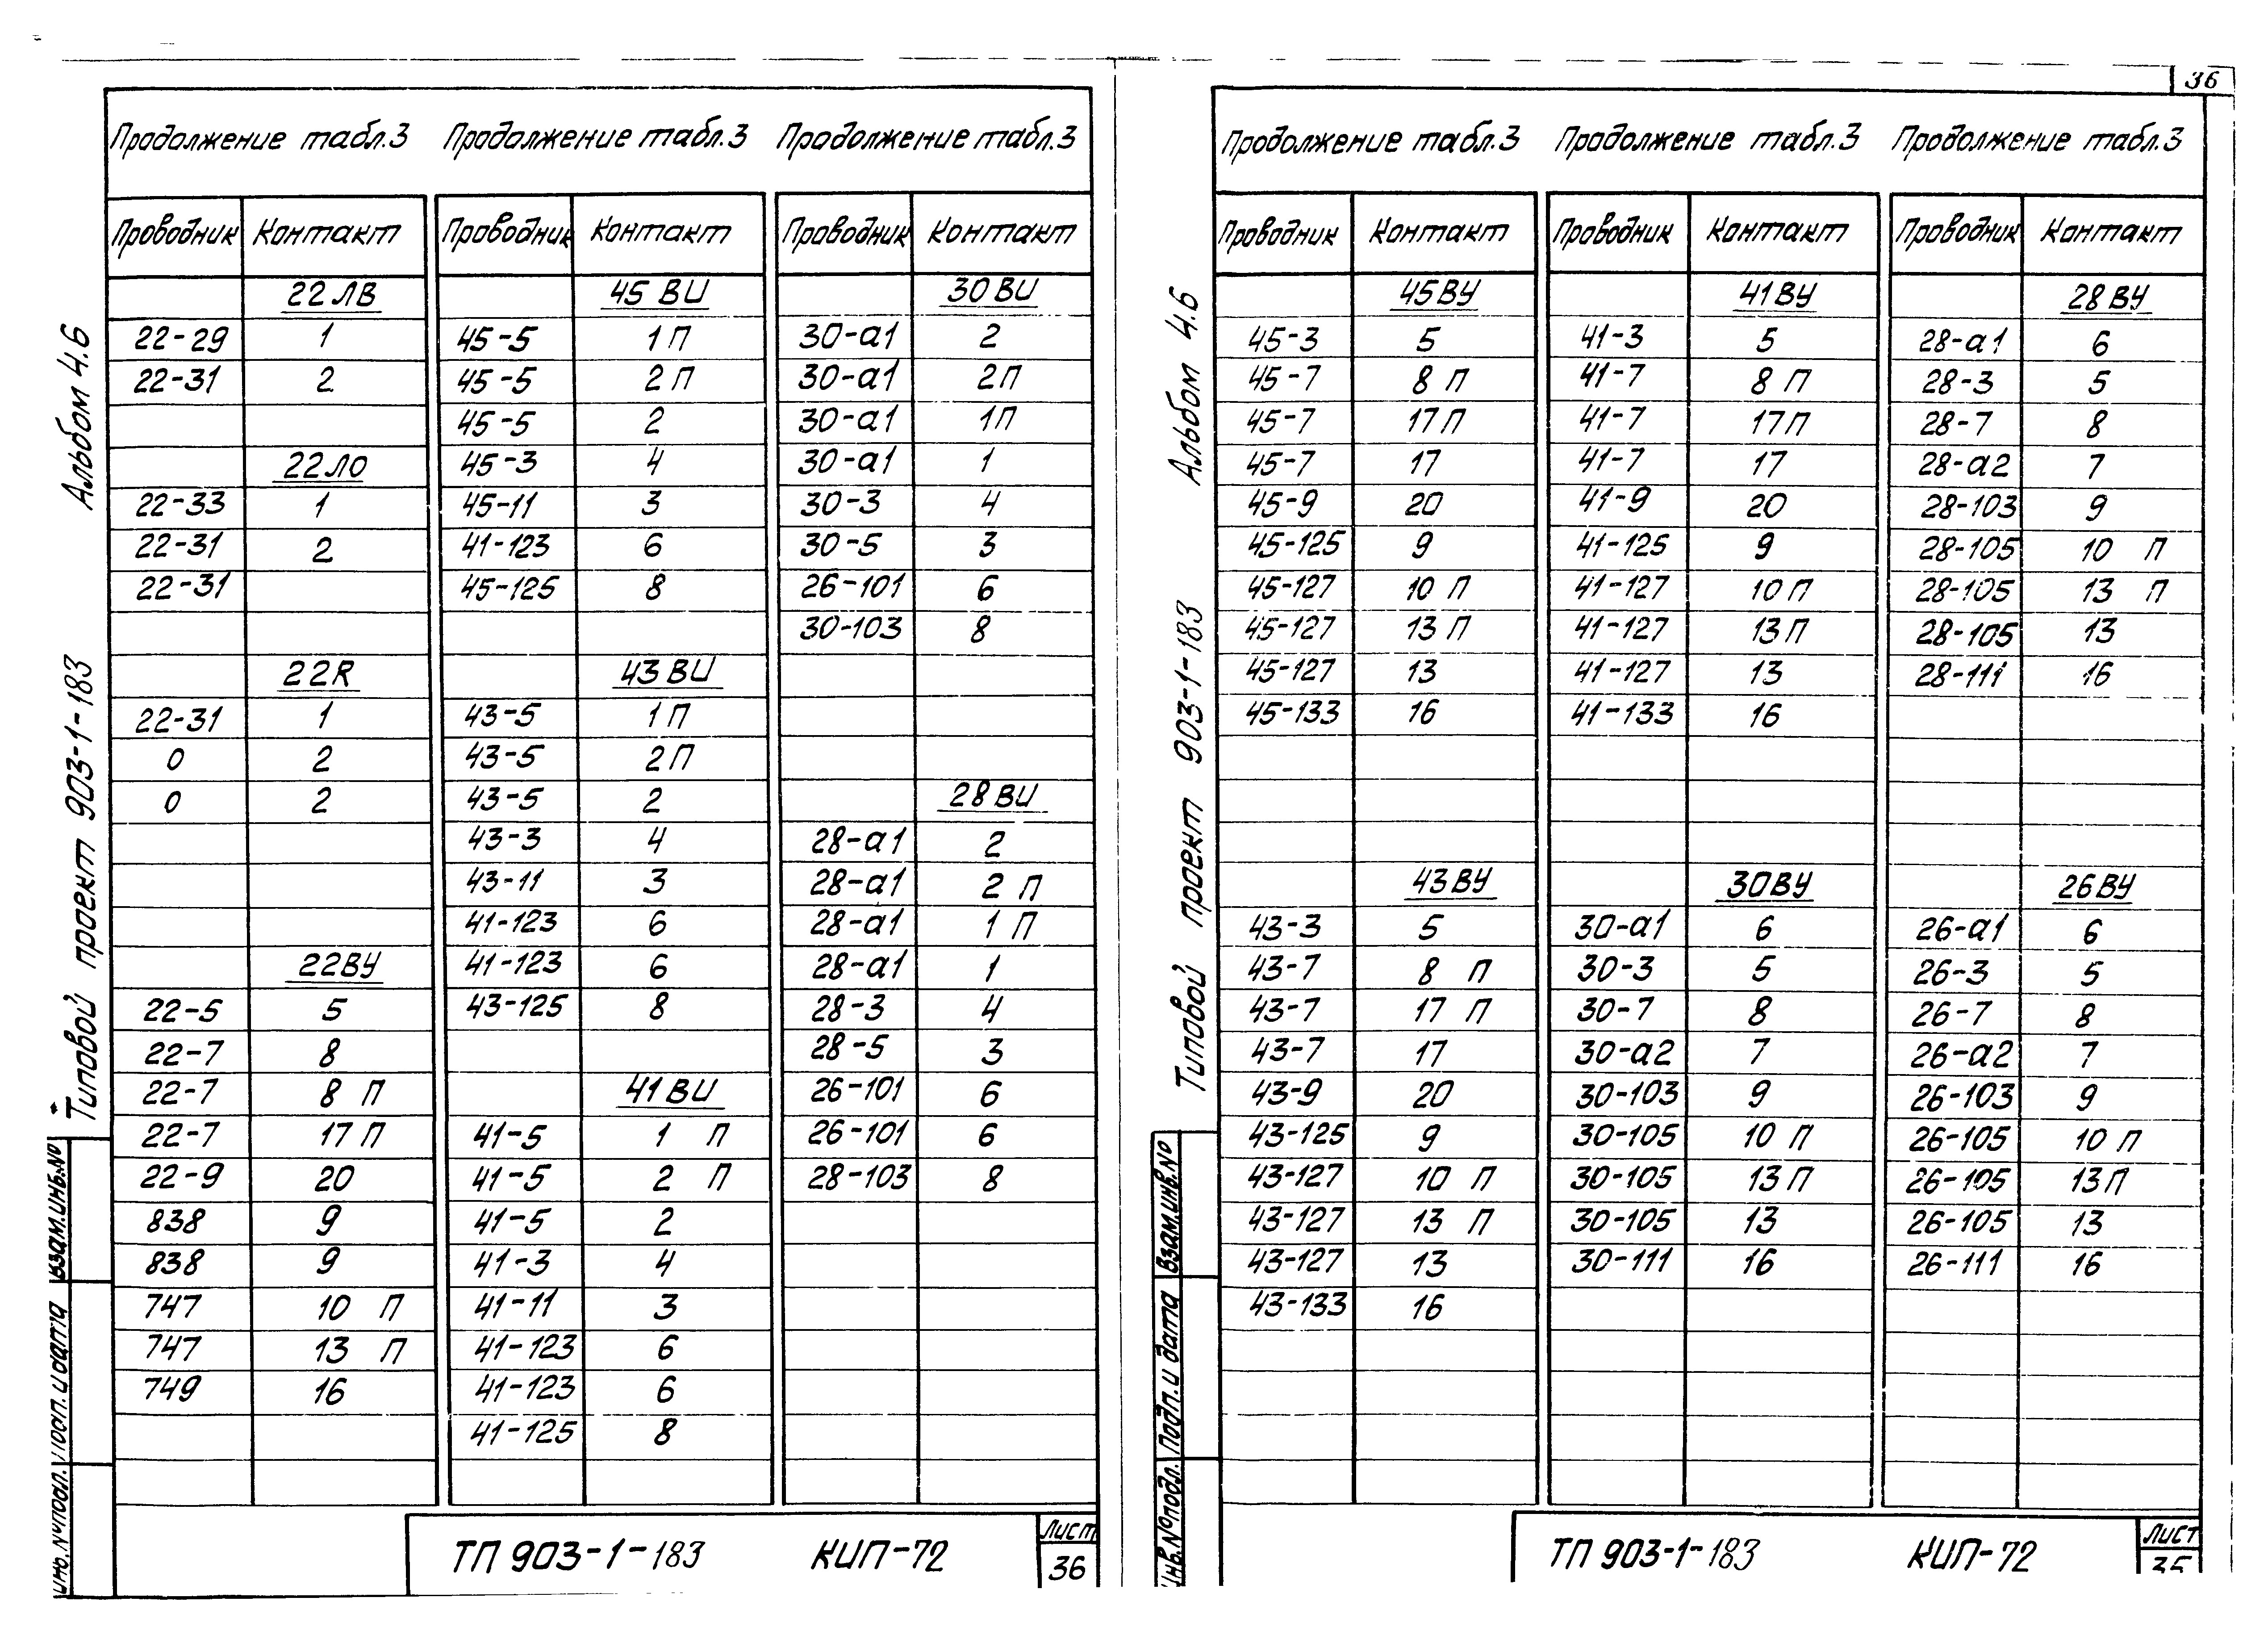 36
Продолжение табл.3 Продолжение табл.3 Продолжение табл.3
Проводник Контакт Проводник Контакт Проводник Контакт
22ЛВ 45ВИ 30ВИ
22-29 1 45-5 1П 30-а1 2
22-31 2 45-5 2П 30-а1 2П
45-5 2 30-а1 1П
22ЛО 45-3 4 30-а1 1
22-33 1 45-11 3 30-3 4
22-31 2 41-123 6 30-5 3
22-31 45-125 8 26-101 6
30-103 8
22R 43ВИ
22-31 1 43-5 1П
0 2 43-5 2П
0 2 43-5 2 28ВИ
43-3 4 28-а1 2
43-11 3 28-а1 2 П
41-123 6 28-а1 1 П
22ВУ 41-123 6 28-а1 1
22-5 5 43-125 8 28-3 4
22-7 8 28-5 3
22-7 8 П 41ВИ 26-101 6
22-7 17П 41-5 1 П 26-101 6
22-9 20 41-5 2 П 28-103 8
838 9 41-5 2
838 9 41-3 4
747 10 П 41-11 3
747 13 П 41-123 6
749 16 41-123 6
41-125 8
Альбом 4.6
Типовой проект 903-1-183
Взам.инв.№
Подп. и дата
Инв.№подл.
ТП 903-1-183 КИП-72
Лист
36
Продолжение табл.3 Продолжение табл.3 Продолжение табл.3
Проводник Контакт Проводник Контакт Проводник Контакт
45ВУ 41ВУ 28ВУ
45-3 5 41-3 5 28-а1 6
45-7 8 П 41-7 8 П 28-3 5
45-7 17П 41-7 17П 28-7 8
45-7 17 41-7 17 28-а2 7
45-9 20 41-9 20 28-103 9
45-125 9 41-125 9 28-105 10 П
45-127 10 П 41-127 10П 28-105 13 П
45-127 13 П 41-127 13П 28-105 13
45-127 13 41-127 13 28-111 16
45-133 16 41-133 16
43ВУ 30ВУ 26ВУ
43-3 5 30-а1 6 26-а1 6
43-7 8 П 30-3 5 26-3 5
43-7 17 П 30-7 8 26-7 8
43-7 17 30-а2 7 26-а2 7
43-9 20 30-103 9 26-103 9
43-125 9 30-105 10 П 26-105 10 П
43-127 10 П 30-105 13П 26-105 13П
43-127 13 П 30-105 13 26-105 13
43-127 13 30-111 16 26-111 16
43-133 16
Альбом 4.6
Типовой проект 903-1-183
Взам.инв.№
Подп. и дата
Инв.№подл.
ТП 903-1-183 КИП-72
Лист
35